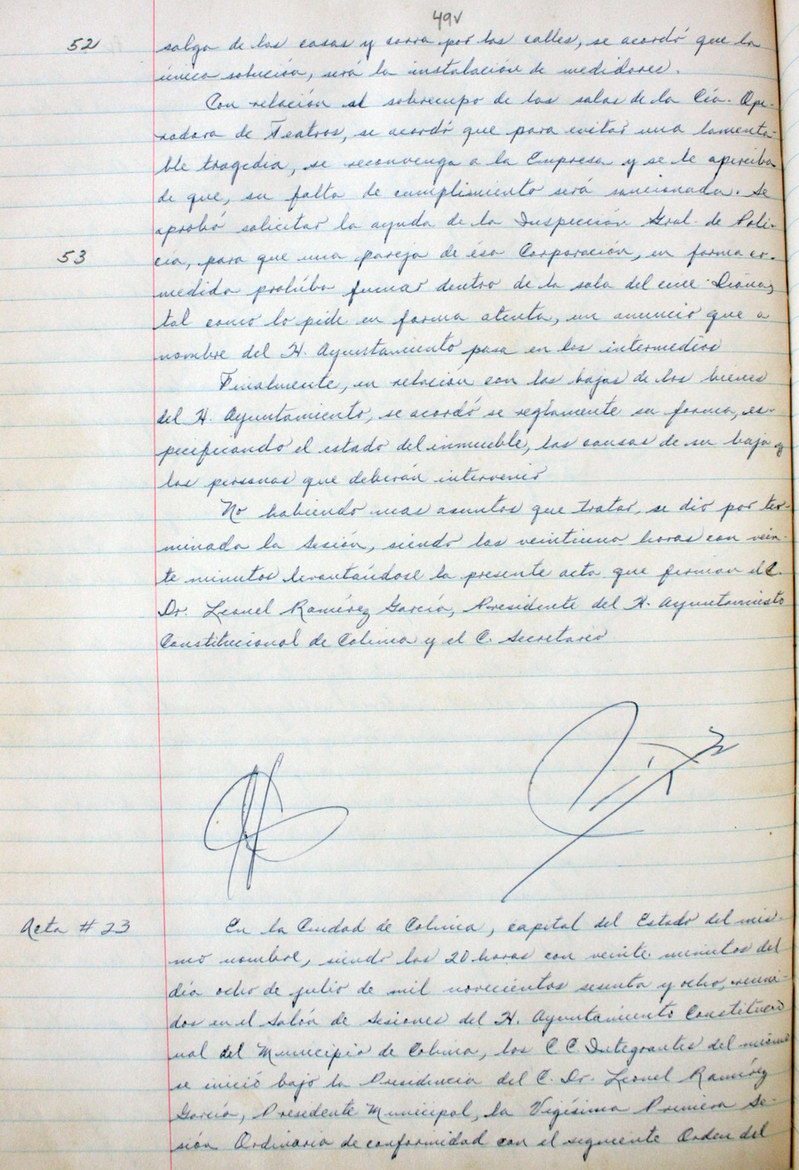 49v
52 salga de las casas y corra por las calles, se acordó que la
única solución, será la instalación de medidores.
Con relación al sobrecupo de las salas de la Cía. Ope-
radora de Teatros, se acordó que para evitar una lamenta-
ble tragedia, se reconvenga a la Empresa y se le aperciba
de que, su falta de cumplimiento será sancionada. Se
aprobó solicitar la ayuda de la Inspección Gral. de Poli-
53 cía, para que una pareja de ésa Corporación, en forma co-
medida prohíba fumar dentro de la sala del cine Diana,
tal como lo pide en forma atenta, un anuncio que a
nombre del H. Ayuntamiento pasa en los intermedios
Finalmente, en relación con las bajas de los bienes
del H. Ayuntamiento, se acordó se reglamente su forma, es-
pecificando el estado del inmueble, las causas de su baja y
las personas que deberán intervenir
No habiendo mas asuntos que tratar, se dió por ter-
minada la Sesión, siendo las veintiuna horas con vein-
te minutos levantándose la presente acta que firman el C.
Dr. Leonel Ramírez García, Presidente del H. Ayuntamiento
Constitucional de Colima y el C. Secretario
Acta # 23 En la Ciudad de Colima, capital del Estado del mis-
mo nombre, siendo las 20 horas con veinte minutos del
día ocho de julio de mil novecientos sesenta y ocho, reuni-
dos en el Salón de Sesiones del H. Ayuntamiento Constitucio
nal del Municipio de Colima, los C C Integrantes del mismo
se inició bajo la Presidencia del C. Dr. Leonel Ramírez
García, Presidente Municipal, la Vigésima Primera Se-
sión Ordinaria de conformidad con el siguiente Orden del